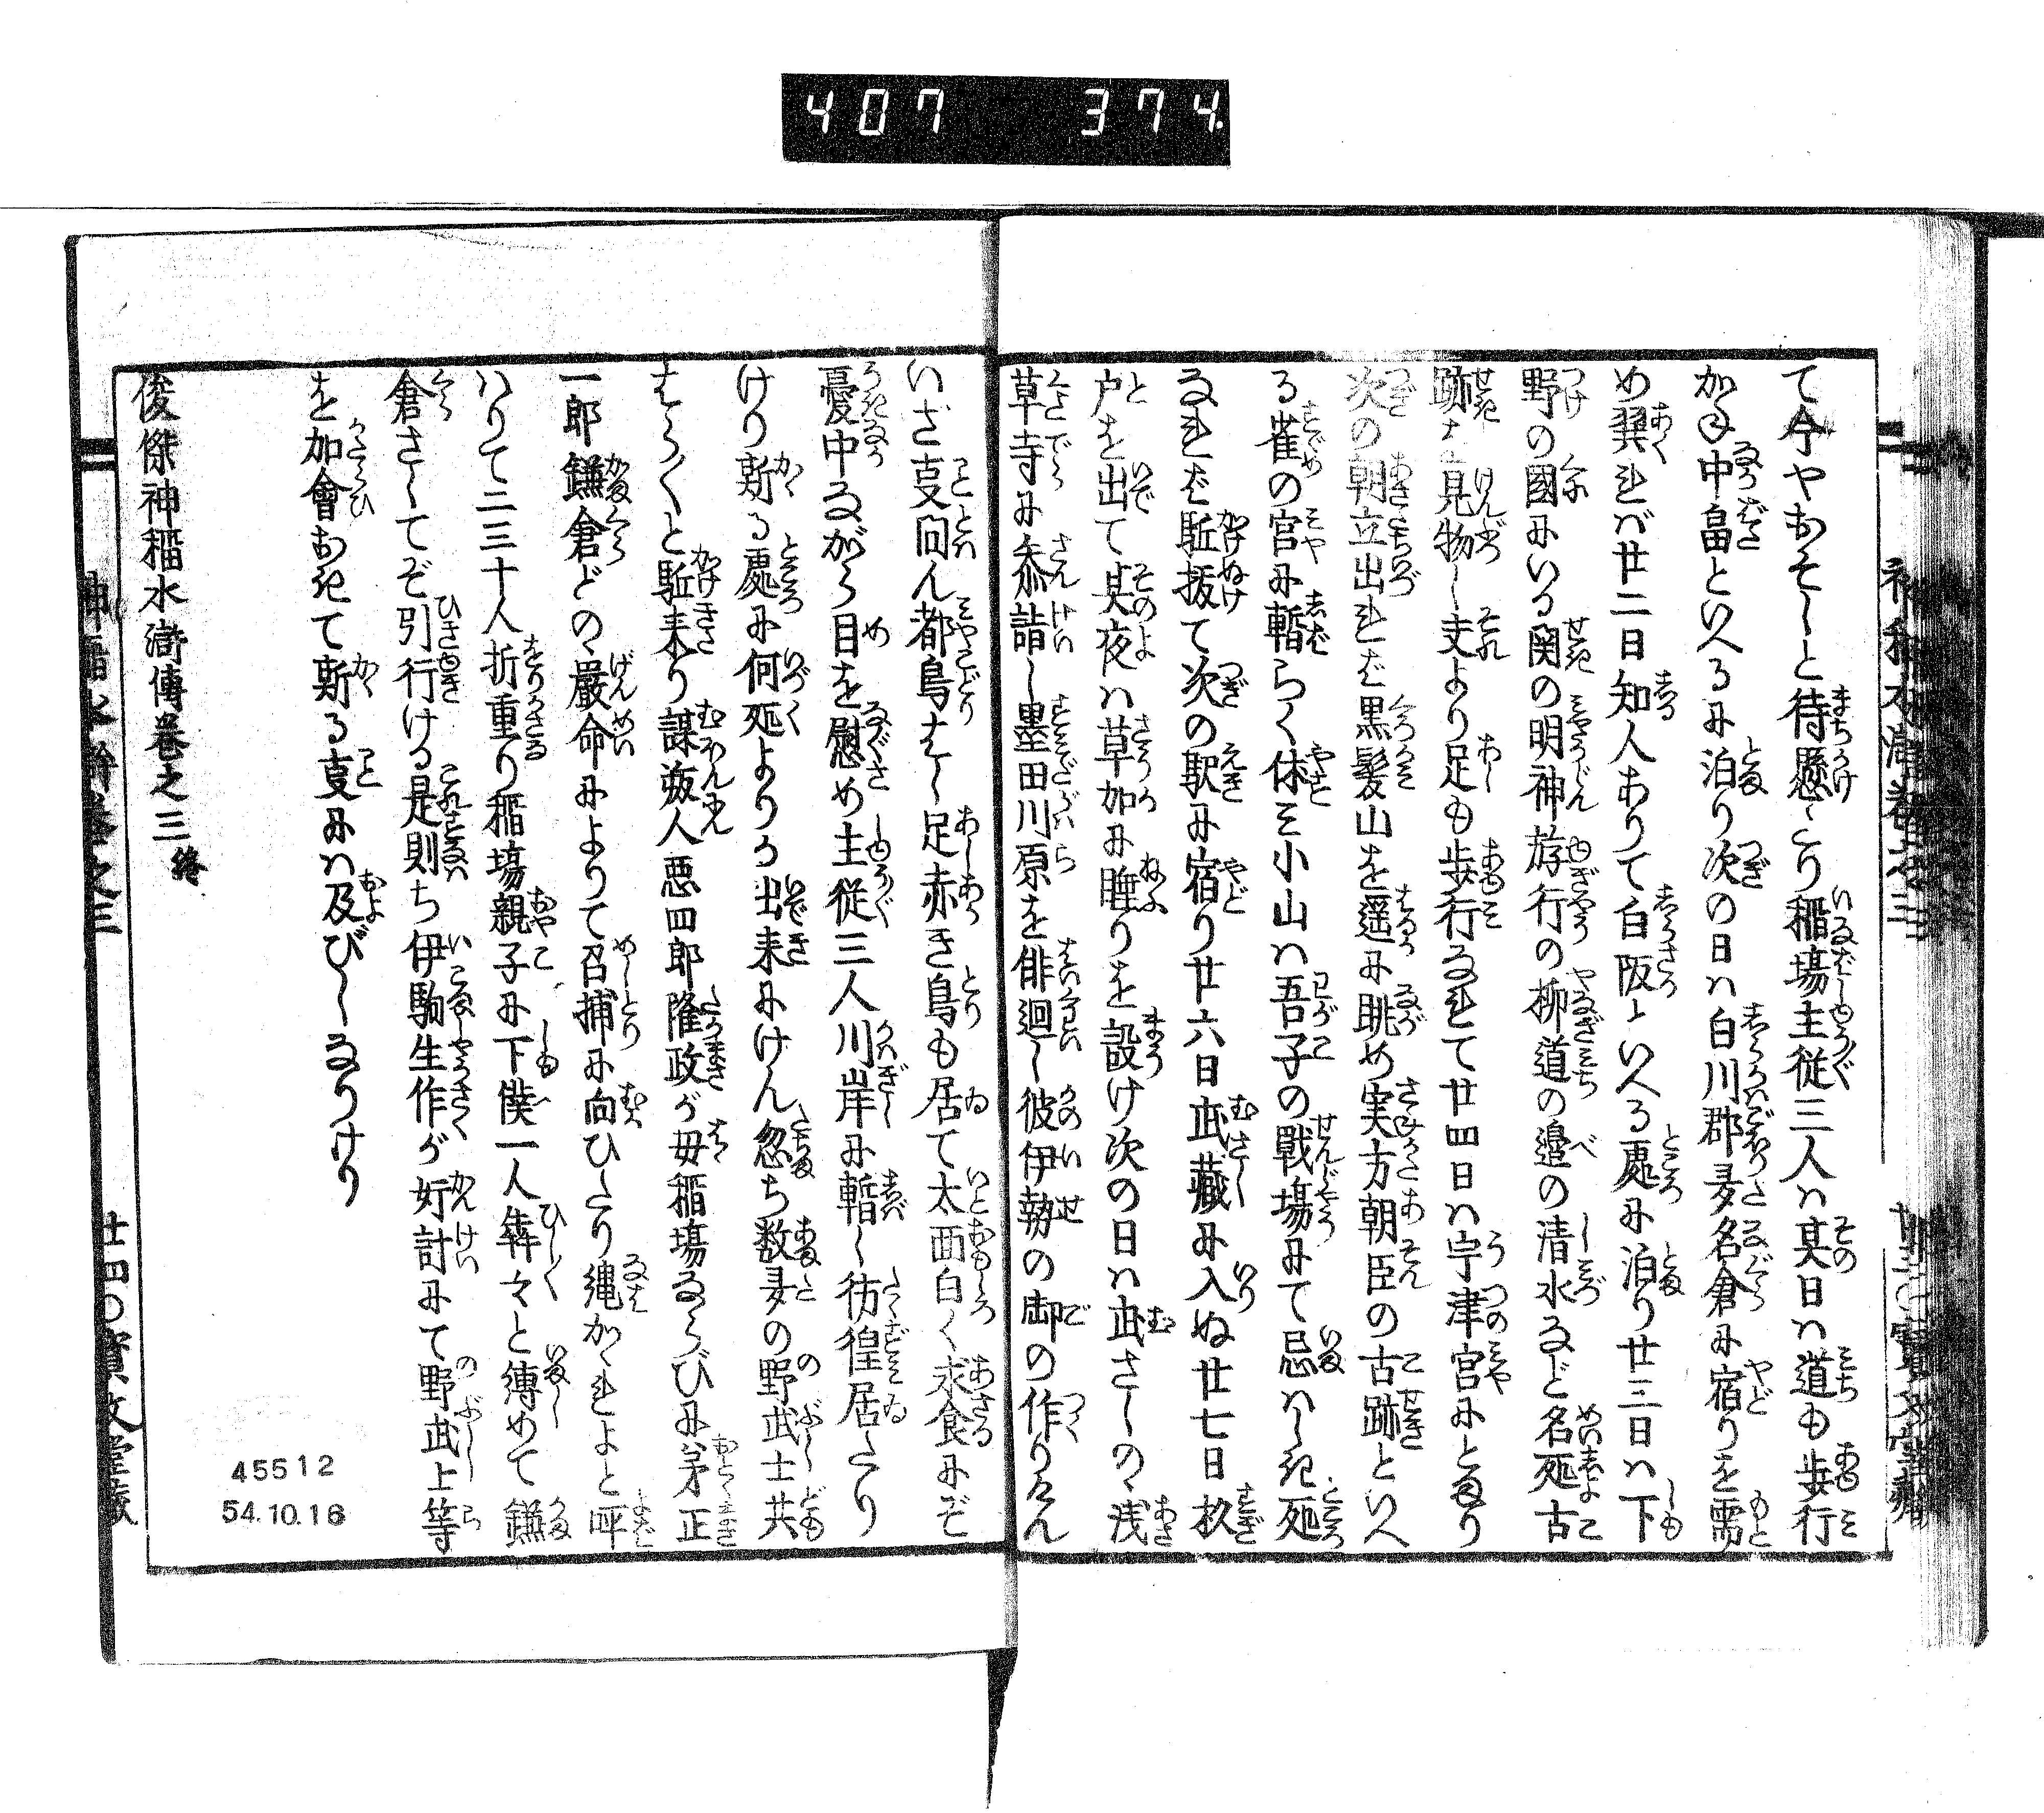 407 374.
て今やおそしと待懸たり稲場主従三人ハ其日ハ道も歩行
加ね中畠といへるに泊り次の日ハ白川郡麦名倉に宿りを需
め翼れバ廿二日知人ありて白阪といへる處に泊り廿三日ハ下
野の國にいる関の明神游行の柳道の邉の清水など名処古
跡を見物し夫より足も歩行なれて廿四日ハ宇津宮にとまり
次の朝立出れば黒髪山を遥に眺め実方朝臣の古跡といへ
る雀の宮に暫らく休ミ小山ハ吾子の戰場にて忌ハしき処
なれば駈拔て次の駅に宿り廿六日武藏に入ぬ廿七日杦
戸を出て其夜ハ草加に睡りを設け次の日ハ武さしのゝ浅
草寺に叅詣し墨田川原を俳廻し彼伊勢の御の作りけん
いざ叓问ん都鳥はし足赤き鳥も居て太面白く求食にぞ
憂中ながら目を慰め主従三人川岸に暫し彷徨居たり
けり斯る處に何処よりか出来にけん忽ち数多の野武士共
はら〱と駈来り謀叛人悪四郎隆政が毋稲塲ならびに弟正
一郎鎌倉どのゝ嚴命によりて召捕に向ひたり縄かゝれよと呼
ハりて二三十人折重り稲塲親子に下僕一人犇々と縛めて鎌
倉さしてぞ引行ける是則ち伊駒生作が奸計にて野武士等
を加會おきて斯る叓にハ及びしなりけり
俊傑神稲水滸傳巻之三終
神稲水滸傳巻之三
廿四〇寳文堂蔵
45512
54.10.16